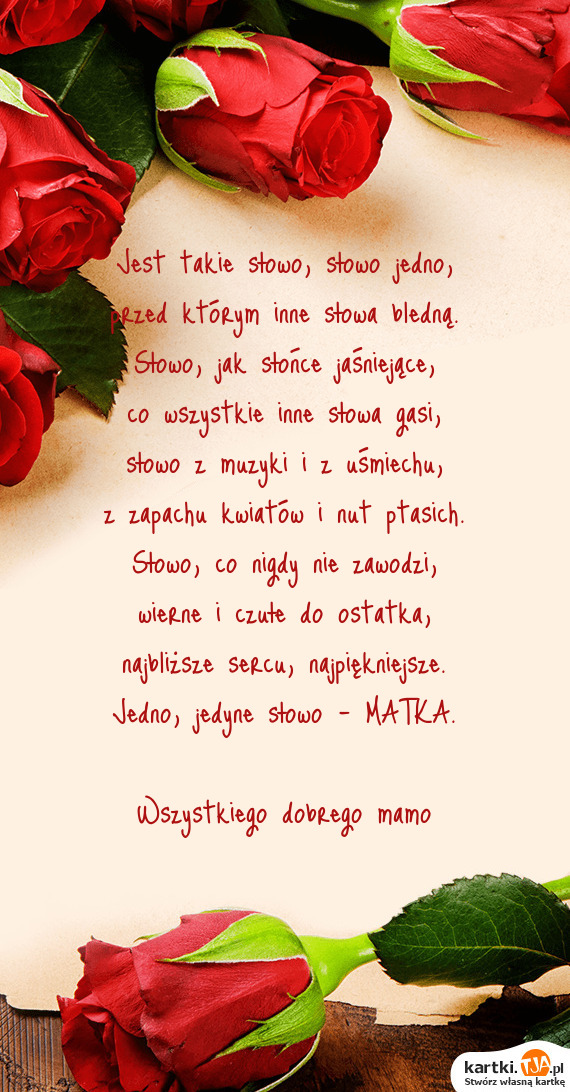 Jest takie słowo, słowo jedno,
przed którym inne słowa bledną.
Słowo, jak słońce jaśniejące,
co wszystkie inne słowa gasi,
słowo z muzyki i z uśmiechu,
z zapachu kwiatów i nut ptasich.
Słowo, co nigdy nie zawodzi,
wierne i czułe do ostatka,
najbliższe sercu, najpiękniejsze.
Jedno, jedyne słowo - MATKA.
Wszystkiego dobrego mamo
kartki.TJA.pl
Stwórz własną kartkę